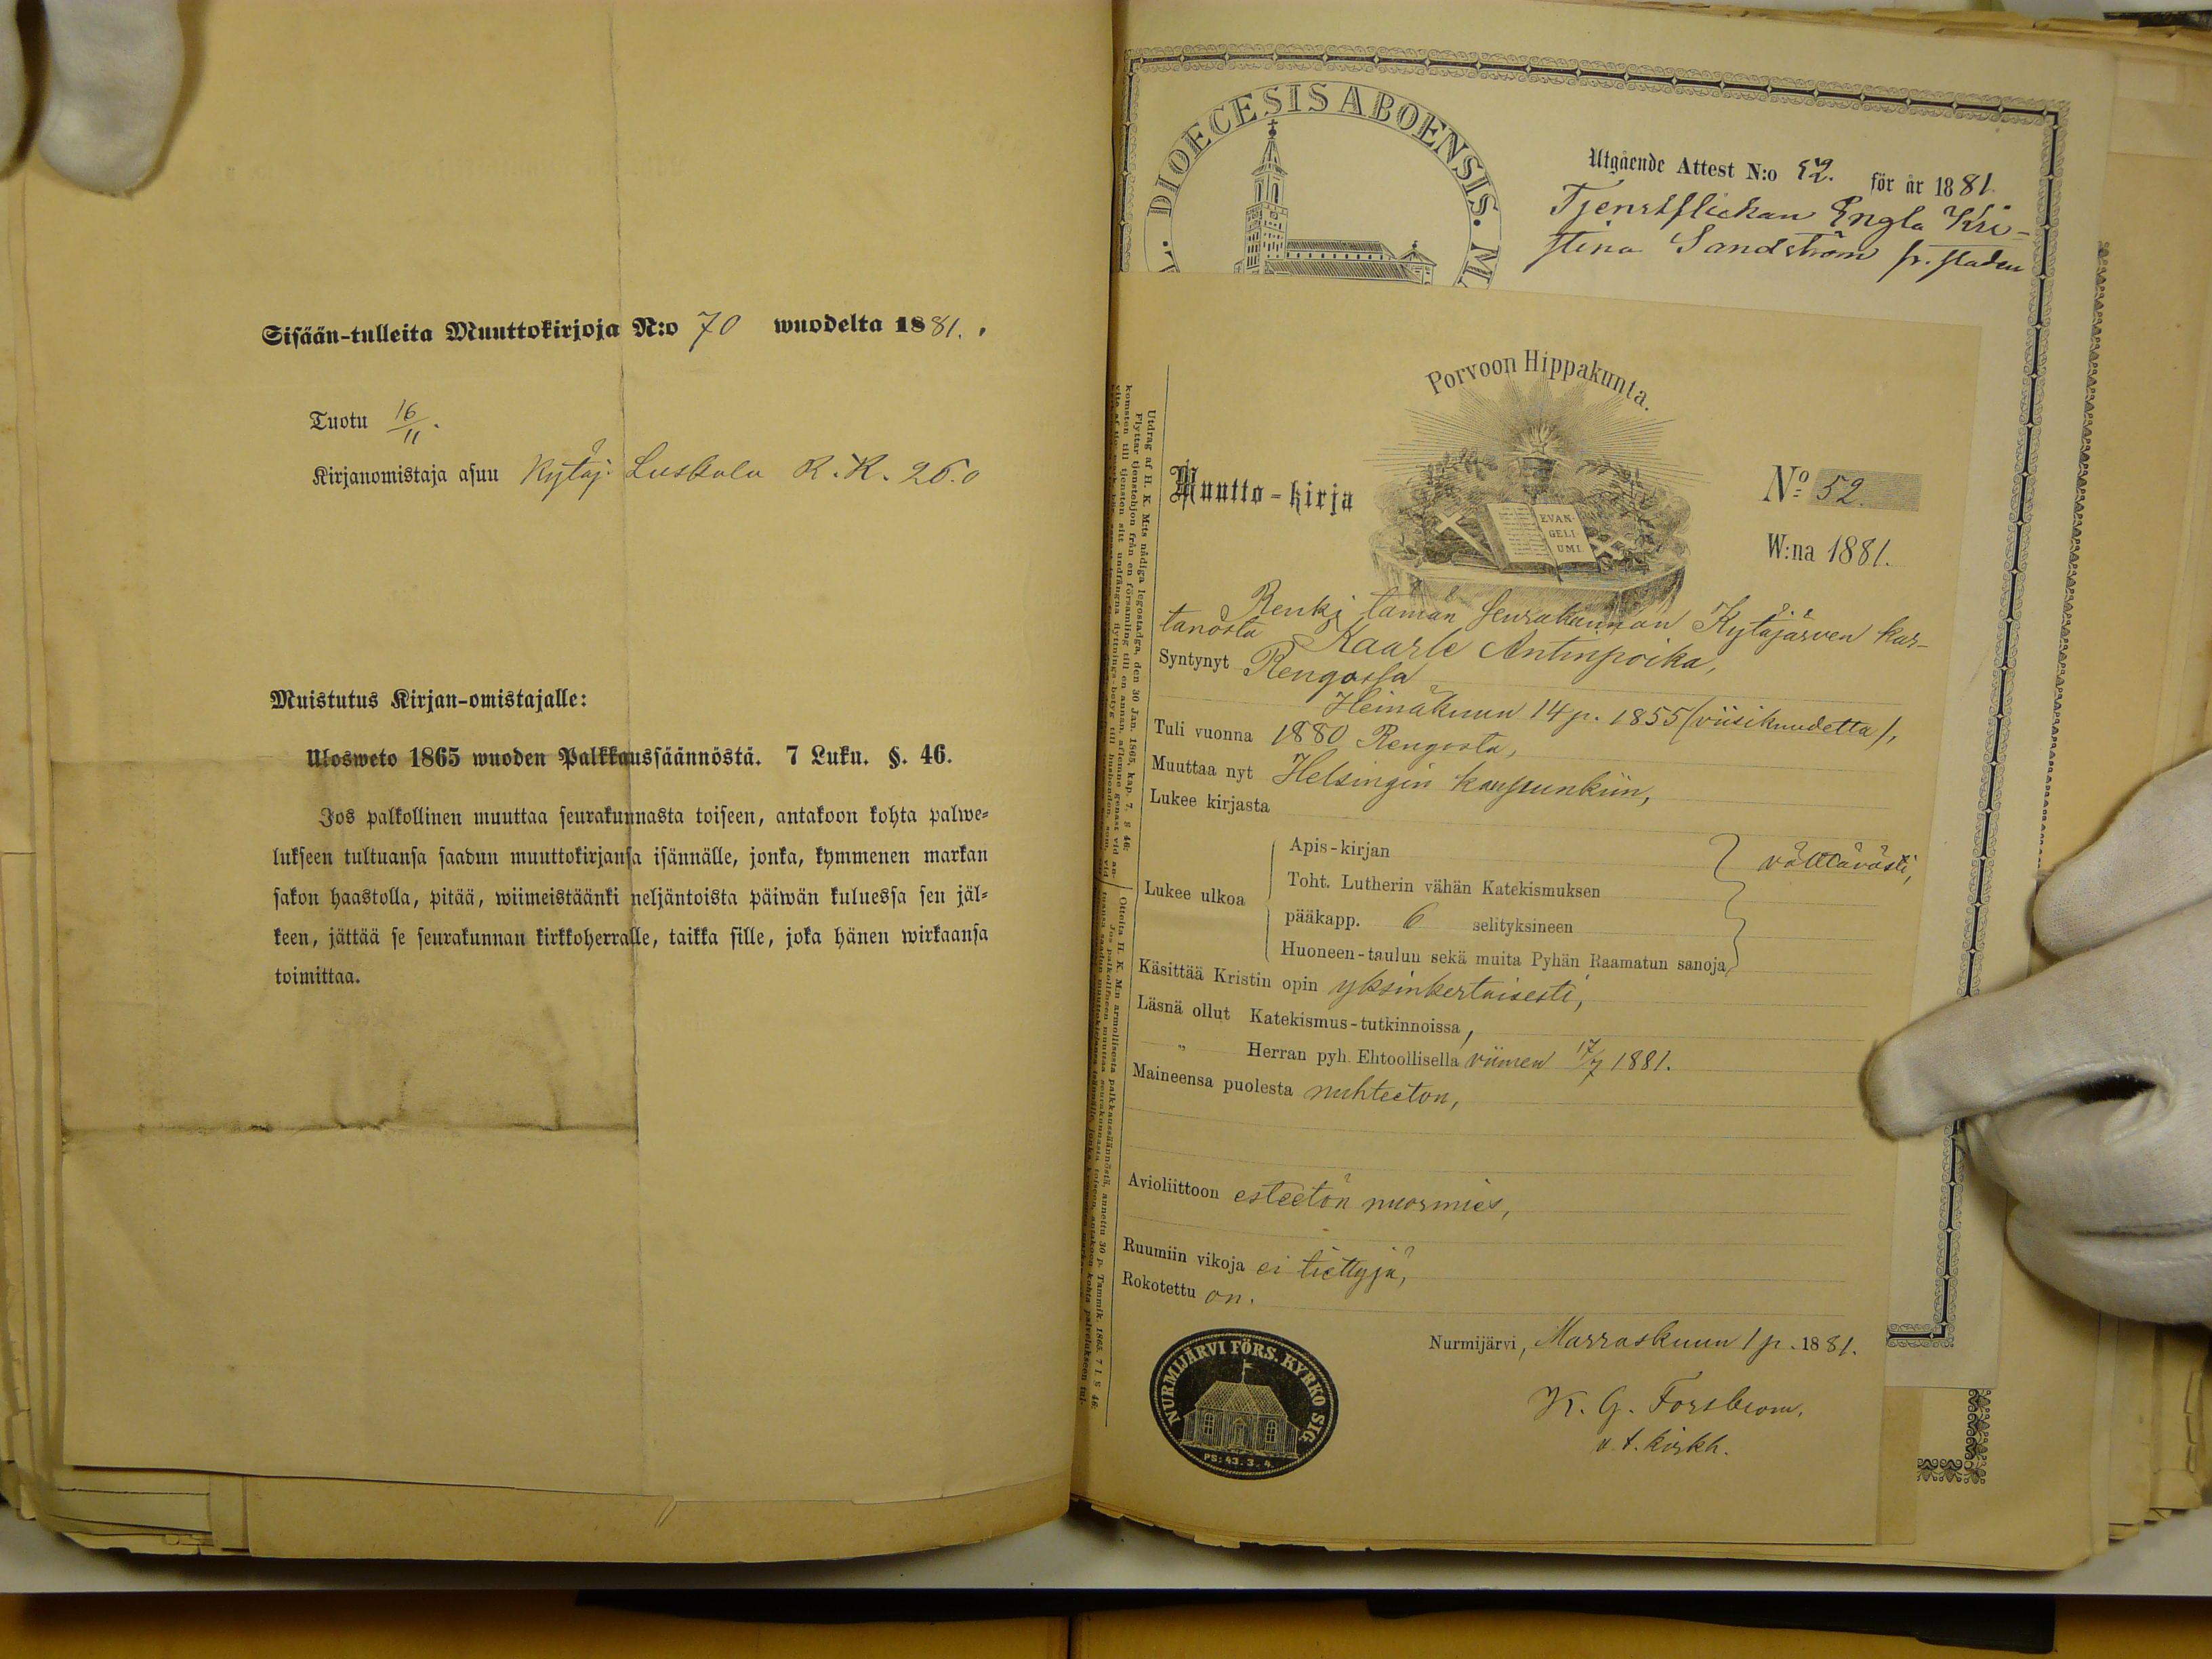 Sisään-tulleita Muuttokirjoja N:o 70 wuodelta 1881.
Tuotu 16/11.
Kirjanomistaja asuu Kytäj. Luskala R. K. 260
Muistutus Kirjan-omistajalle:
Ulosweto 1865 wuoden Palkkaussäännöstä. 7 Luku. §. 46.
Jos palkollinen muuttaa seurakunnasta toiseen, antakoon kohta palwe-
lukseen tultuansa saadun muuttokirjansa isännälle, jonka, kymmenen markan
sakon haastolla, pitää, wiimeistäänki neljäntoista päiwän kuluessa sen jäl-
keen, jättää se seurakunnan kirkkoherralle, taikka sille, joka hänen wirkaansa
toimittaa.
DIOECESIS ABOENSIS. MA
Utgående Attest N:o 52. för år 1881.
Tjenstflickan Engla Kri-
stina Sandström fr. staden
Porvoon Hippakunta.
EVAN-
GELI-
UMI.
Muutto-kirja
No 52.
W:na 1881.
Renki tämän seurakunnan Kytäjärven kar-
tanosta Kaarle Antinpoika,
Syntynyt Rengossa
Heinäkuun 14 p. 1855 (viisikuudetta),
Tuli vuonna 1880 Rengosta,
Muuttaa nyt Helsingin kaupunkiin,
Lukee kirjasta
Lukee ulkoa
Apis-kirjan
Toht. Lutherin vähän Katekismuksen
pääkapp. 6 selityksineen
Huoneen-taulun sekä muita Pyhän Raamatun sanoja
välttävästi,
Käsittää Kristin opin yksinkertaisesti,
Läsnä ollut Katekismus-tutkinnoissa,
„ Herran pyh. Ehtoollisella viimen 17/7 1881.
Maineensa puolesta nuhteeton,
Avioliittoon esteetön nuormies,
Ruumiin vikoja ei tiettyjä,
Rokotettu on.
Nurmijärvi, Marraskuun 1 p. 1881.
K. G. Forsblom.
v. t. kirkh.
NURMIJÄRVI FÖRS. KYRKO SIG.
PS: 43. 3. 4.
Utdrag af H. K. M:ts nådiga legostadga, den 30 Jan. 1865, kap. 7, § 46:
Flyttar tjenstehjon från en församling till en annan, aflemne genast vid an-
komsten till tjensten sitt undfångna flyttnings-betyg till husbonden, som, vid
Otteita H. K. M:n armollisesta palkkaussäännöstä, annettu 30 p. Tammik. 1865. 7 l. § 46:
Jos palkollinen muuttaa seurakunnasta toiseen, antakoon kohta palvelukseen tul-